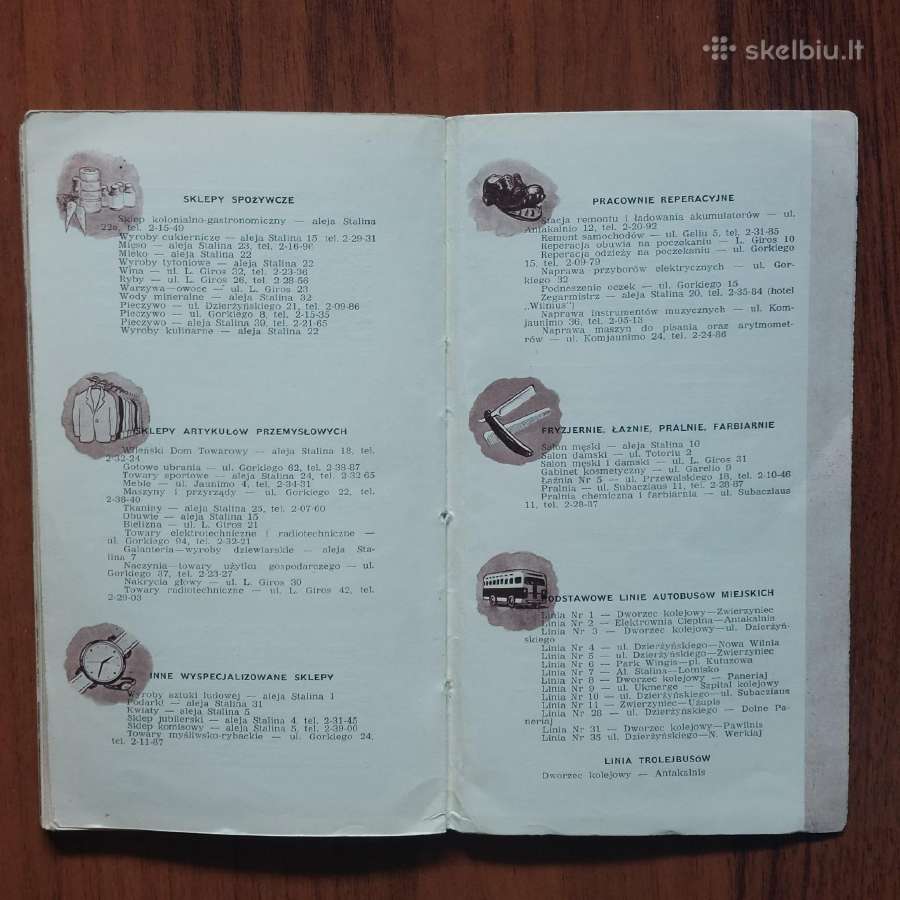 skelbiu.lt
SKLEPY SPOŻYWCZE
Sklep kolonialno-gastronomiczny — aleja Stalina
22a, tel. 2-15-49
Wyroby cukiernicze — aleja Stalina 15 tel. 2-29-31
Mięso — aleja Stalina 23, tel. 2-16-90
Mleko — aleja Stalina 22
Wyroby tytoniowe — aleja Stalina 22
Wina — ul. L. Giros 32, tel. 2-23-36
Ryby — ul. L. Giros 26, tel. 2-28-56
Warzywa—owoce — ul. L. Giros 23
Wody mineralne — aleja Stalina 32
Pieczywo — ul. Dzierżyńskiego 21, tel. 2-09-86
Pieczywo — ul. Gorkiego 8, tel. 2-15-35
Pieczywo — aleja Stalina 39, tel. 2-21-65
Wyroby kulinarne — aleja Stalina 22
SKLEPY ARTYKUŁÓW PRZEMYSŁOWYCH
Wileński Dom Towarowy — aleja Stalina 18, tel.
2-32-24
Gotowe ubrania — ul. Gorkiego 62, tel. 2-38-87
Towary sportowe — aleja Stalina 24, tel. 2-32-65
Meble — ul. Jaunimo 4, tel. 2-34-31
Maszyny i przyrządy — ul. Gorkiego 22, tel.
2-38-40
Tkaniny — aleja Stalina 25, tel. 2-07-60
Obuwie — aleja Stalina 15
Bielizna — ul. L. Giros 21
Towary elektrotechniczne i radiotechniczne —
ul. Gorkiego 94, tel. 2-32-21
Galanteria—wyroby dziewiarskie — aleja Sta-
lina 7
Naczynia—towary użytku gospodarczego — ul.
Gorkiego 37, tel. 2-23-27
Nakrycia głowy — ul. L. Giros 30
Towary radiotechniczne — ul. L. Giros 42, tel.
2-29-03
INNE WYSPECJALIZOWANE SKLEPY
Wyroby sztuki ludowej — aleja Stalina 1
Podarki — aleja Stalina 31
Kwiaty — aleja Stalina 5
Sklep jubilerski — aleja Stalina 4, tel. 2-31-45
Sklep komisowy — aleja Stalina 5, tel. 2-39-00
Towary myśliwsko-rybackie — ul. Gorkiego 24,
tel. 2-11-87
PRACOWNIE REPERACYJNE
Stacja remontu i ładowania akumulatorów — ul.
Antakalnio 12, tel. 2-20-92
Remont samochodów — ul. Geliu 5, tel. 2-31-85
Reperacja obuwia na poczekaniu — L. Giros 10
Reperacja odzieży na poczekaniu — ul. Gorkiego
15, tel. 2-09-79
Naprawa przyborów elektrycznych — ul. Gor-
kiego 32
Podnoszenie oczek — ul. Gorkiego 15
Zegarmistrz — aleja Stalina 20, tel. 2-35-84 (hotel
„Wilnius")
Naprawa instrumentów muzycznych — ul. Kom-
jaunimo 36, tel. 2-05-13
Naprawa maszyn do pisania oraz arytmomet-
rów — ul. Komjaunimo 24, tel. 2-24-86
FRYZJERNIE, ŁAŹNIE, PRALNIE, FARBIARNIE
Salon męski — aleja Stalina 10
Salon damski — ul. Totoriu 2
Salon męski i damski — ul. L. Giros 31
Gabinet kosmetyczny — ul. Garelio 9
Łaźnia Nr 5 — ul. Przewalskiego 18, tel. 2-10-46
Pralnia — ul. Subacziaus 11, tel. 2-28-87
Pralnia chemiczna i farbiarnia — ul. Subacziaus
11, tel. 2-28-37
PODSTAWOWE LINIE AUTOBUSÓW MIEJSKICH
Linia Nr 1 — Dworzec kolejowy—Zwierzyniec
Linia Nr 2 — Elektrownia Cieplna—Antakalnis
Linia Nr 3 — Dworzec kolejowy—ul. Dzierżyń-
skiego
Linia Nr 4 — ul. Dzierżyńskiego—Nowa Wilnia
Linia Nr 5 — ul. Dzierżyńskiego—Zwierzyniec
Linia Nr 6 — Park Wingis—pl. Kutuzowa
Linia Nr 7 — Al. Stalina—Lotnisko
Linia Nr 8 — Dworzec kolejowy — Paneriaj
Linia Nr 9 — ul. Ukmerge — Szpital kolejowy
Linia Nr 10 — ul. Dzierżyńskiego—ul. Subacziaus
Linia Nr 11 — Zwierzyniec—Użupis
Linia Nr 28 — ul. Dzierżyńskiego — Dolne Pa-
neriaj
Linia Nr 31 — Dworzec kolejowy—Pawilnis
Linia Nr 35 ul. Dzierżyńskiego—N. Werkiaj
LINIA TROLEJBUSÓW
Dworzec kolejowy — Antakalnis